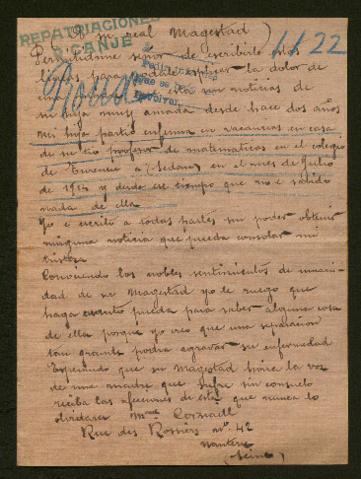 REPATRIACIONES
Y CANJE
S. R. M. (real Magestad)
1122
Permitidme señor de escribirle dos
lineas para podale esplicar la dolor de
una sin noticias de
mi hija muy amada desde hace dos años
mi hija partio enferma en vacancias en casa
de su tio profesor de matematicas en el colegio
de Turenne a (Sedan) en el mes de Julio
de 1914 y desde ese tiempo que no é sabido
nada de ella
Yo é escrito a todas partes sin poder obtenir
ninguna noticia que pueda consolar mi
tristesa
Conociendo los nobles sentimientos de
dad de su Magestad yo le ruego que
haga cuanto pueda para saber alguna cosa
de ella porque yo creo que una separacion
tan grande podra agravar su enfermedad
Esperando que su Magestad hoira la voz
de una madre que sufre sin consuelo
reciba las afecciones de esta que nunca lo
olvidara Mme
Rue des Rosiers nº 42
Nanterre
(Seine)